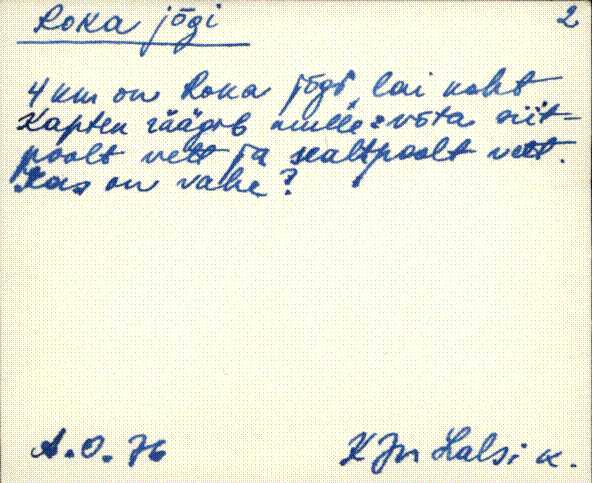 Loka jõgi 2
4 km on Loka jõgi, lai koht
Kapten räägib mulle: võta siit-
poolt vett ja sealtpoolt vett.
Kas on vahe?
A.O. 76 K Jõe Lalsi k.